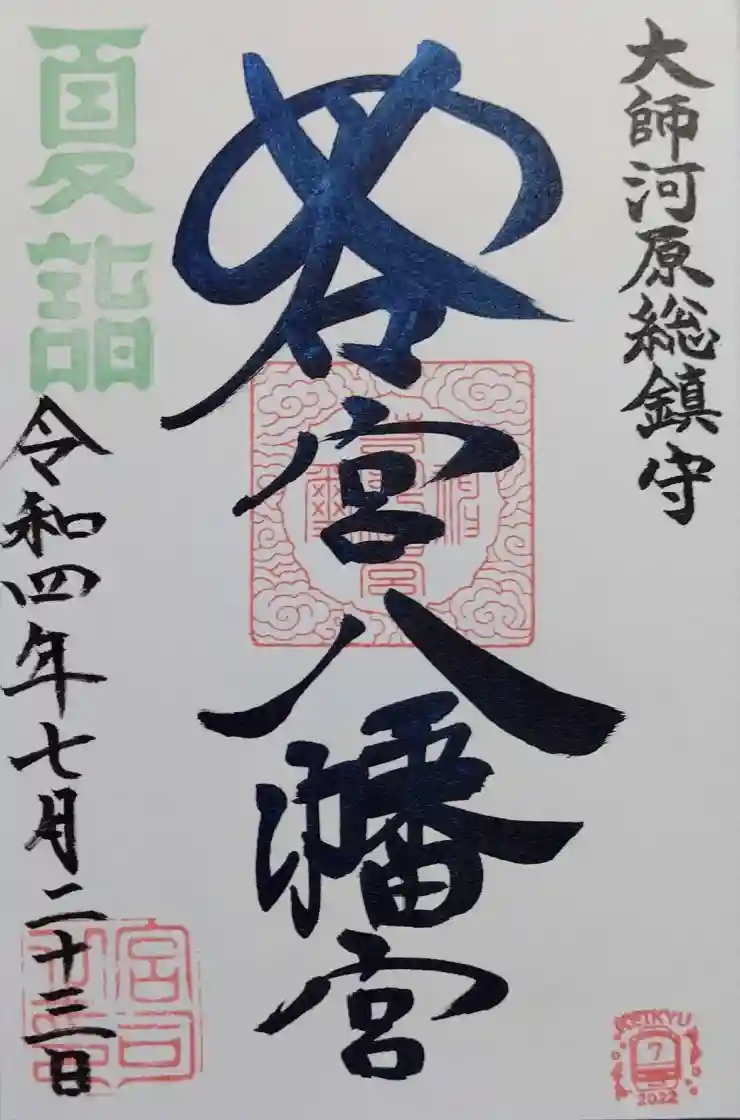 大師河原総鎮守
若宮八幡宮
夏詣
令和四年七月二十三日
宮司
KEIKYU
7
2022